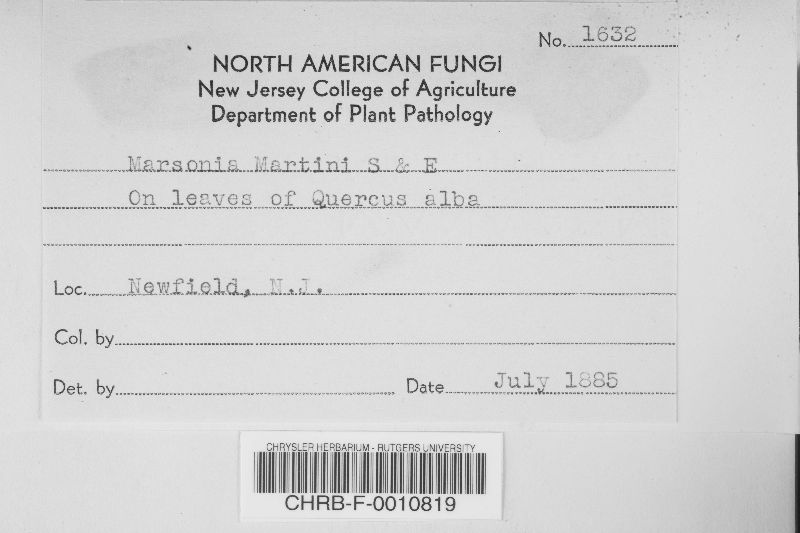 No. 1632
NORTH AMERICAN FUNGI
New Jersey College of Agriculture
Department of Plant Pathology
Marsonia Martini S & E
On leaves of Quercus alba
Loc. Newfield, N.J.
Col. by
Det. by Date July 1885
CHRYSLER HERBARIUM - RUTGERS UNIVERSITY
CHRB-F-0010819